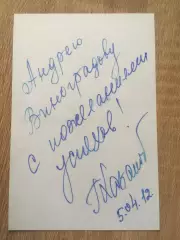 Андрею
Виноградову
с пожеланиями
успехов!
5.04.12